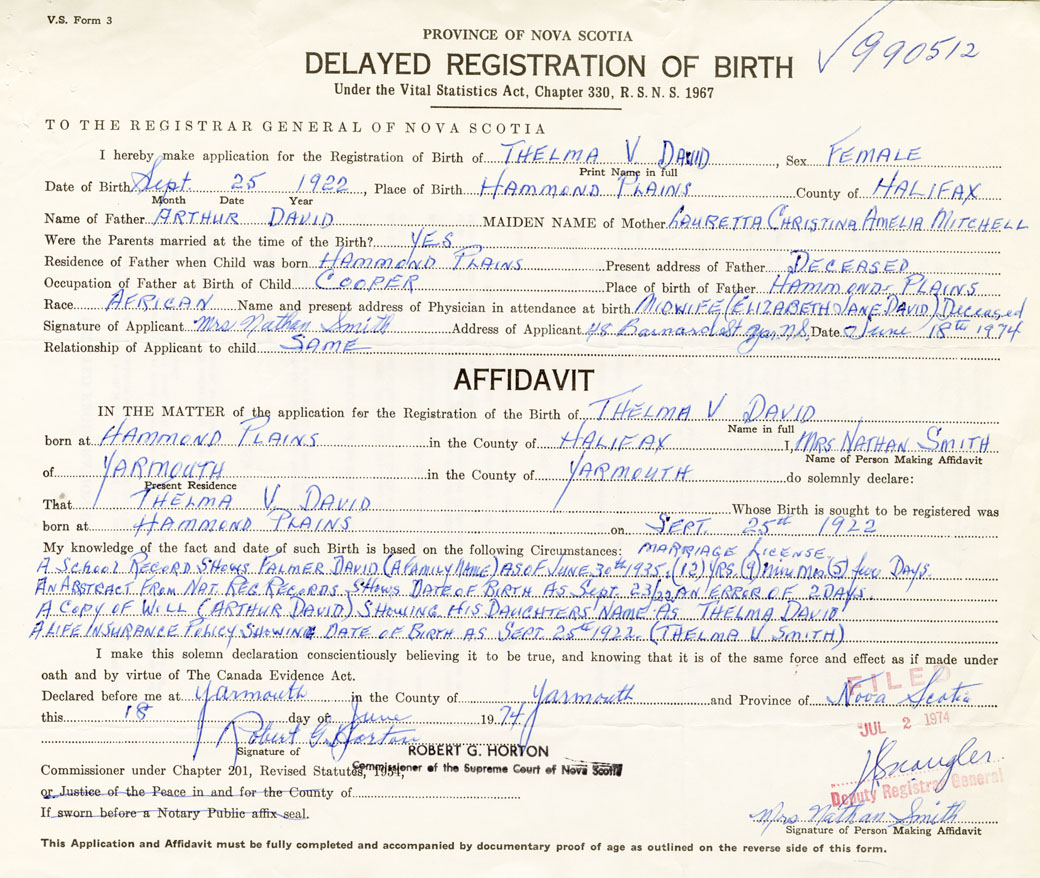 V.S. Form 3
PROVINCE OF NOVA SCOTIA
√990512
DELAYED REGISTRATION OF BIRTH
Under the Vital Statistics Act, Chapter 330, R. S. N. S. 1967
TO THE REGISTRAR GENERAL OF NOVA SCOTIA
I hereby make application for the Registration of Birth of THELMA V DAVID, Sex FEMALE
Print Name in full
Date of Birth Sept. 25 1922, Place of Birth HAMMOND PLAINS County of HALIFAX
Month Date Year
Name of Father ARTHUR DAVID MAIDEN NAME of Mother LAURETTA CHRISTINA AMELIA MITCHELL
Were the Parents married at the time of the Birth? YES
Residence of Father when Child was born HAMMOND PLAINS Present address of Father DECEASED
Occupation of Father at Birth of Child COOPER Place of birth of Father HAMMOND PLAINS
Race AFRICAN Name and present address of Physician in attendance at birth MIDWIFE (ELIZABETH JANE DAVID) Deceased
Signature of Applicant Mrs Nathan Smith Address of Applicant 48 Barnard St Yar, N.S. Date June 18TH 1974
Relationship of Applicant to child SAME
AFFIDAVIT
IN THE MATTER of the application for the Registration of the Birth of THELMA V DAVID
Name in full
born at HAMMOND PLAINS in the County of HALIFAX I, MRS NATHAN SMITH
Name of Person Making Affidavit
of YARMOUTH in the County of YARMOUTH do solemnly declare:
Present Residence
That THELMA V. DAVID Whose Birth is sought to be registered was
born at HAMMOND PLAINS on SEPT. 25th 1922
My knowledge of the fact and date of such Birth is based on the following Circumstances: MARRIAGE LICENSE
A SCHOOL RECORD SHOWS PALMER DAVID (A FAMILY NAME) AS OF JUNE 30th 1935. (12) YRS. (9) nine Mos (5) five DAYS.
AN ABSTRACT FROM NAT. REG. RECORDS. SHOWS DATE OF BIRTH AS SEPT. 23/22 AN ERROR OF 2 DAYS.
A COPY OF WILL (ARTHUR DAVID) SHOWING HIS DAUGHTERS NAME AS THELMA DAVID
A LIFE INSURANCE POLICY SHOWING DATE OF BIRTH AS SEPT. 25th 1922. (THELMA V SMITH)
I make this solemn declaration conscientiously believing it to be true, and knowing that it is of the same force and effect as if made under
oath and by virtue of The Canada Evidence Act.
Declared before me at Yarmouth in the County of Yarmouth and Province of Nova Scotia
FILED
this 18 day of June 1974
JUL 2 1974
Robert G. Horton
Signature of ROBERT G. HORTON
Commissioner of the Supreme Court of Nova Scotia
Commissioner under Chapter 201, Revised Statutes, 1954,
or Justice of the Peace in and for the County of
Deputy Registrar General
If sworn before a Notary Public affix seal.
Mrs Nathan Smith
Signature of Person Making Affidavit
This Application and Affidavit must be fully completed and accompanied by documentary proof of age as outlined on the reverse side of this form.